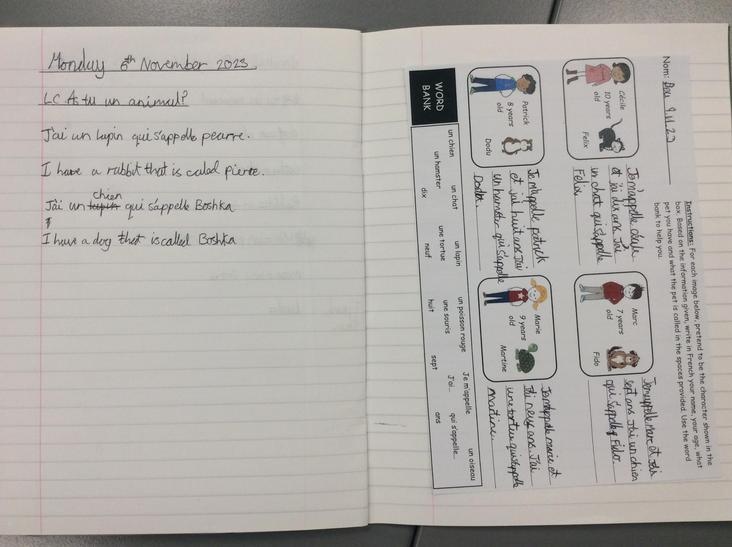 Monday 6th November 2023
LC As tu un animal?
J'ai un lapin qui s'appelle pearre.
I have a rabbit that is called pierre.
chien
J'ai un lapin qui s'appelle Boshka
I have a dog that is called Boshka
Nom: 9.11.23
Instructions: For each image below, pretend to be the character shown in the
box. Based on the information given, write in French your name, your age, what
pet you have and what the pet is called in the spaces provided. Use the word
bank to help you.
Cécile
10 years
old
Felix
Je m'appelle
et j'ai dix ans. J'ai
un chat qui s'appelle
Felix.
Marc
7 years
old
Fido
Je m'appelle Marc et J'ai
sept ans J'ai un chien
qui s'appelle Fido.
Patrick
8 years
old
Dodu
Je m'appelle patrick
et j'ai huit ans J'ai
un hamster qui s'appelle
Marie
9 years
old
Martine
Je m'appelle marie et
J'ai neuf ans. J'ai
une tortue qui s'appelle
martine.
WORD
BANK
un chien
un chat
un lapin
un poisson rouge
Je m'appelle
un oiseau
un hamster
une tortue
une souris
J'ai...
qui s'appelle...
dix
neuf
huit
sept
ans